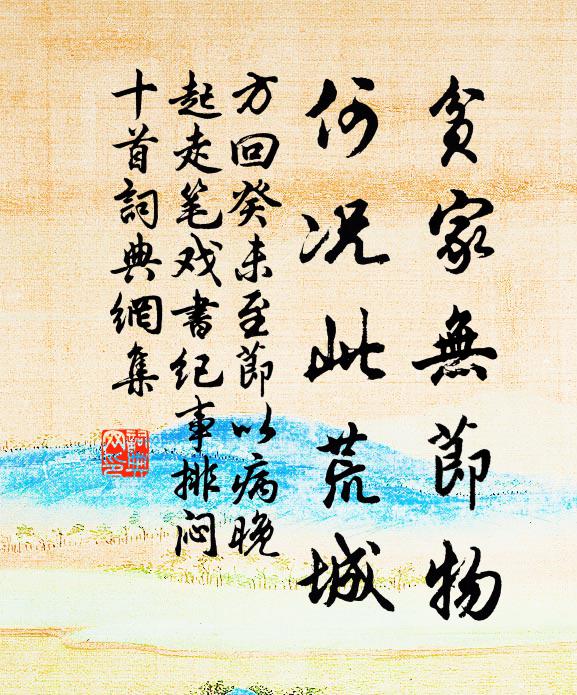 貧家無節物
何况此荒城
方回癸未至節以病晚
起走笔戏書纪事排闷
十首詞典網集